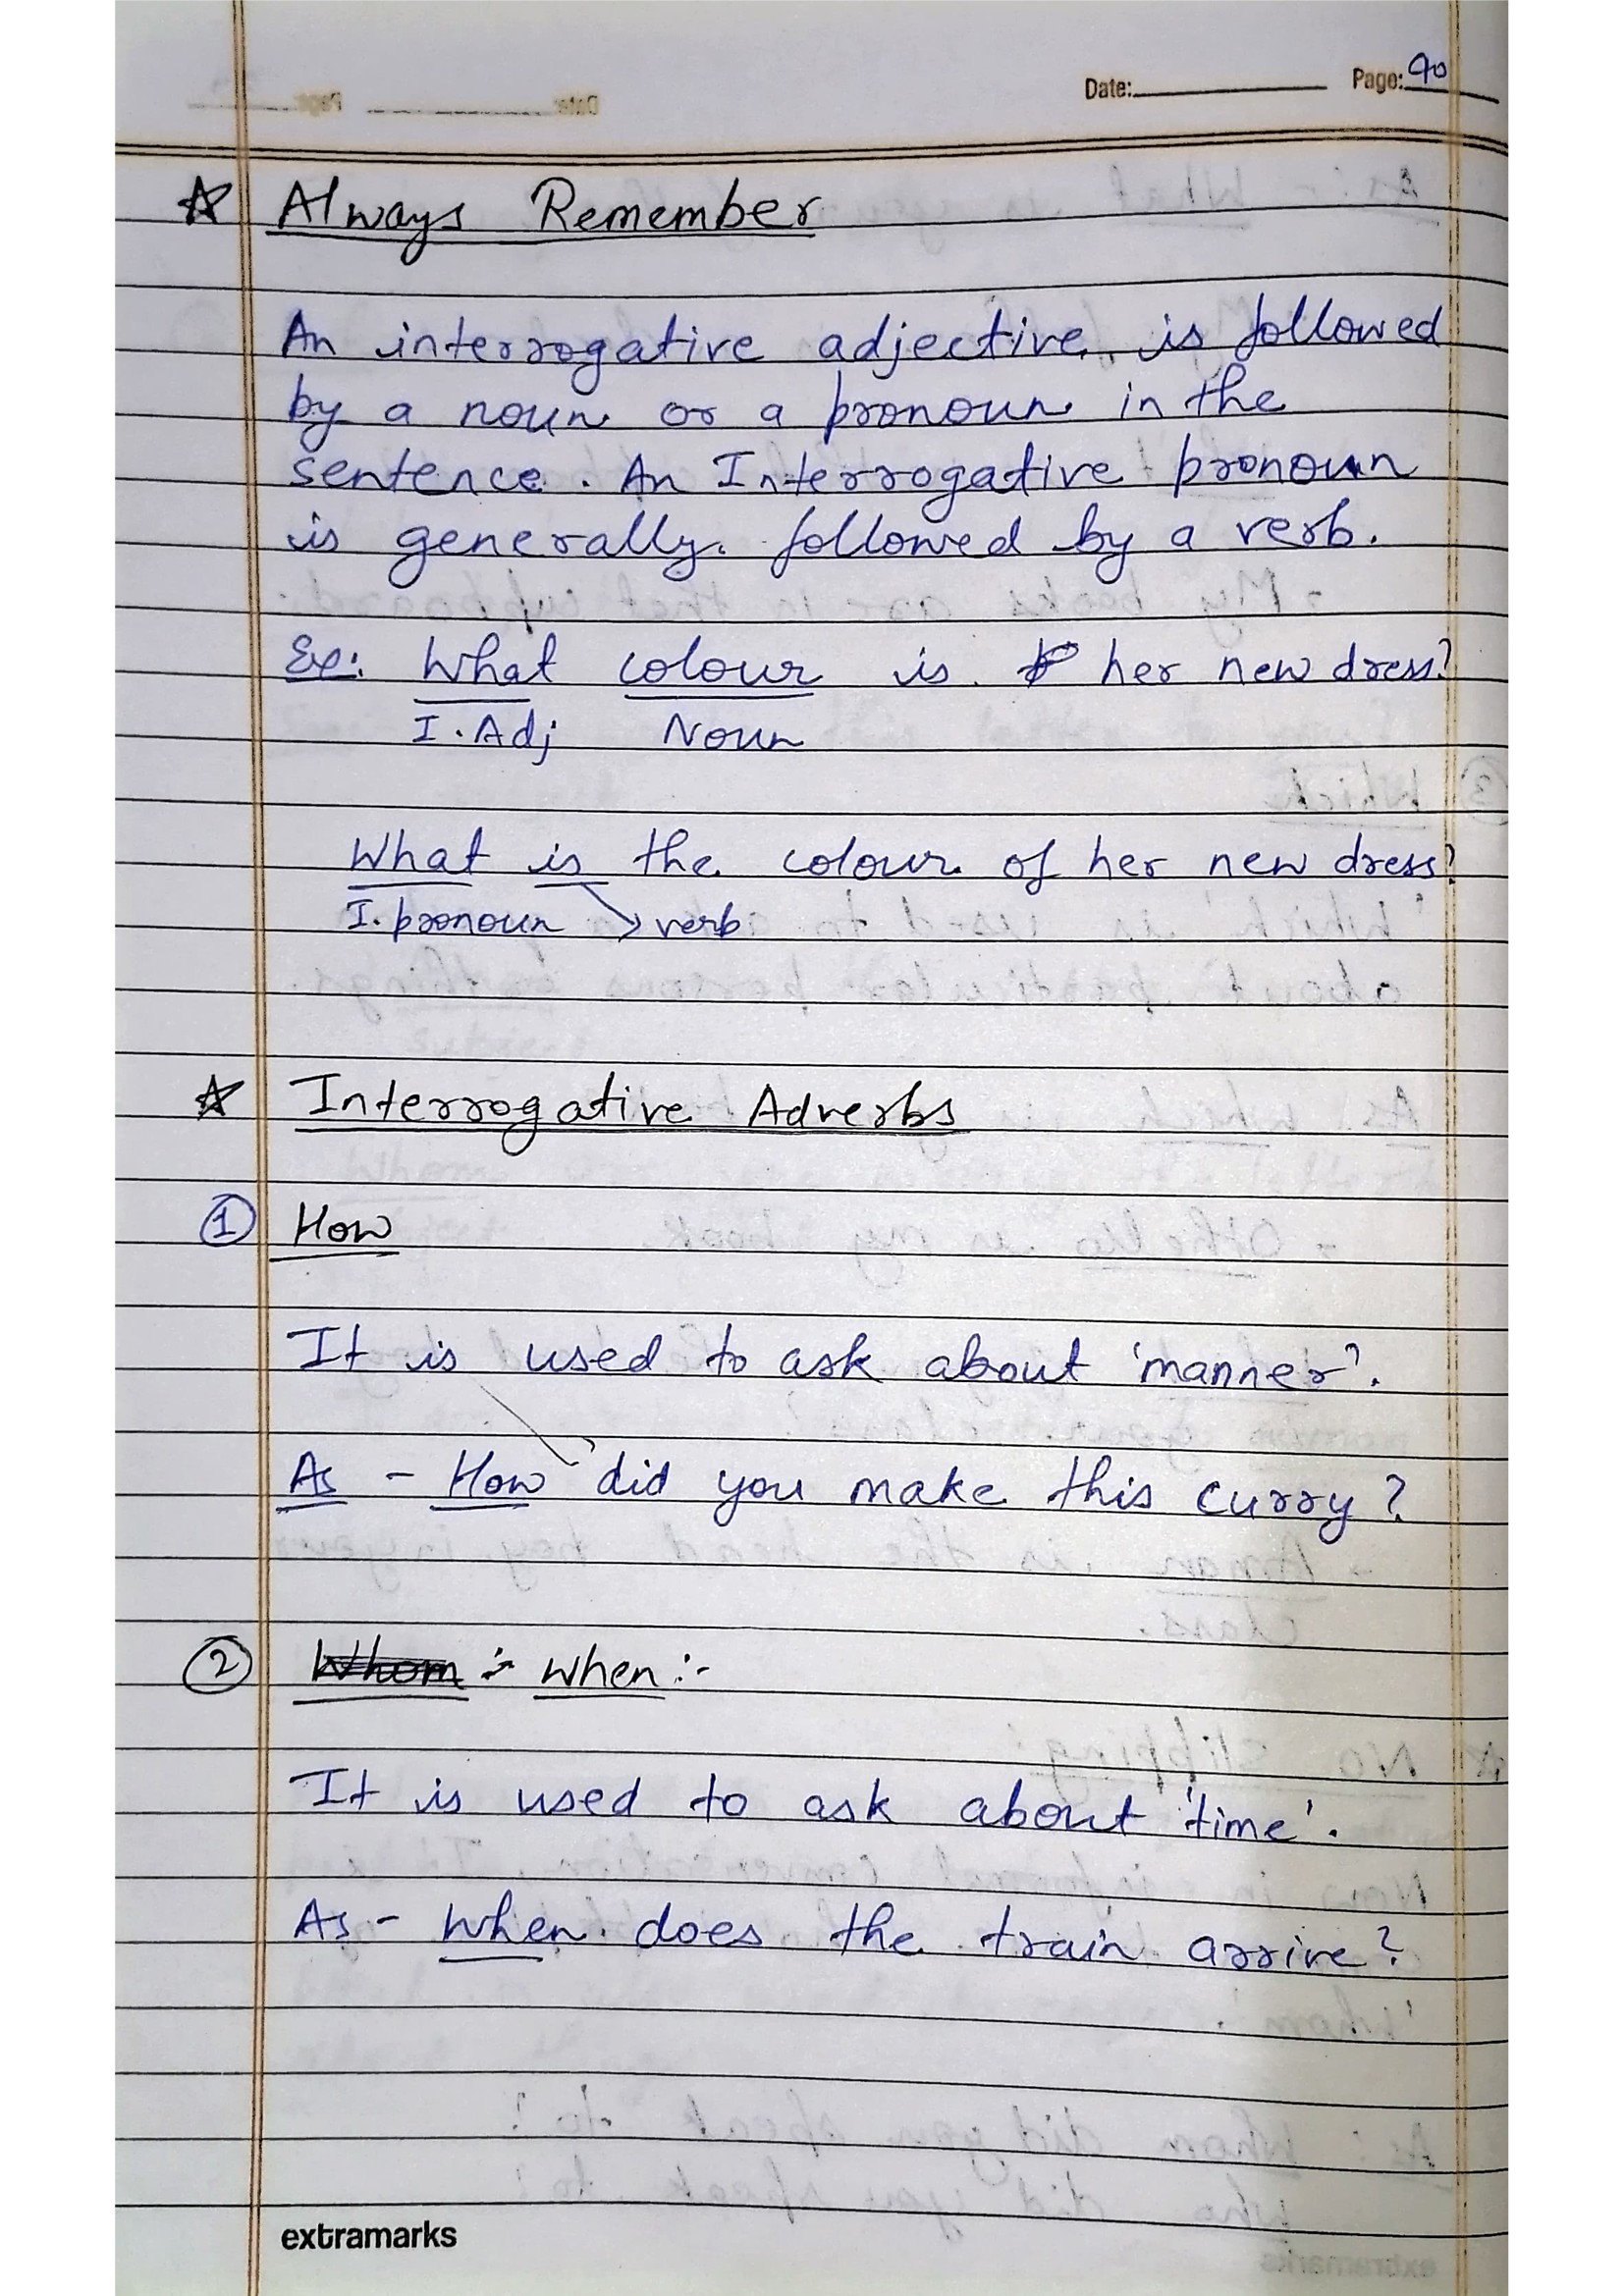 Date: Page: 90
☆ Always Remember
An interrogative adjective is followed
by a noun or a pronoun in the
sentence. An Interrogative pronoun
is generally followed by a verb.
Ex: What colour is her new dress?
I. Adj Noun
What is the colour of her new dress?
I. pronoun → verb
☆ Interrogative Adverbs
① How
It is used to ask about 'manner'.
As - How did you make this curry?
② Whom :- when :-
It is used to ask about 'time'.
As - When does the train arrive?
extramarks